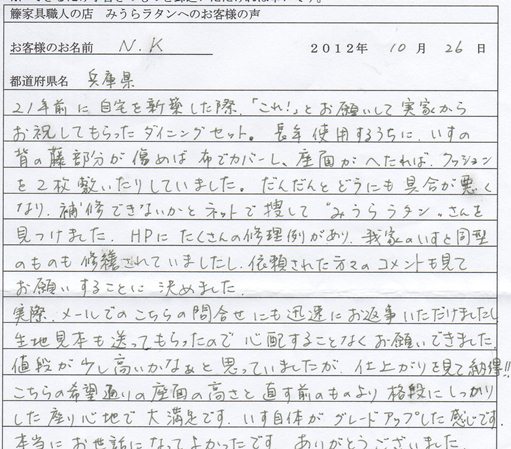 籐家具職人の店 みうらラタンへのお客様の声
お客様のお名前 N.K 2012年 10月 26日
都道府県名 兵庫県
21年前に自宅を新築した際、「これ!」とお願いして実家から
お祝してもらったダイニングセット。長年使用するうちに、いすの
背の藤部分が傷めば布でカバーし、座面がへたれば、クッション
を2枚敷いたりしていました。だんだんとどうにも具合が悪く
なり、補修できないかとネットで捜して"みうらラタン"さんを
見つけました。HPにたくさんの修理例があり、我家のいすと同型
のものも修繕されていましたし、依頼された方々のコメントも見て
お願いすることに決めました。
実際、メールでのこちらの問合せにも迅速にお返事いただけましたし
生地見本も送ってもらったので心配することなくお願いできました。
値段が少し高いかなぁと思っていましたが、仕上がりを見て納得!!
こちらの希望通りの座面の高さと直す前のものより格段にしっかり
した座り心地で大満足です。いす自体がグレードアップした感じです。
本当にお世話になってよかったです。ありがとうございました。